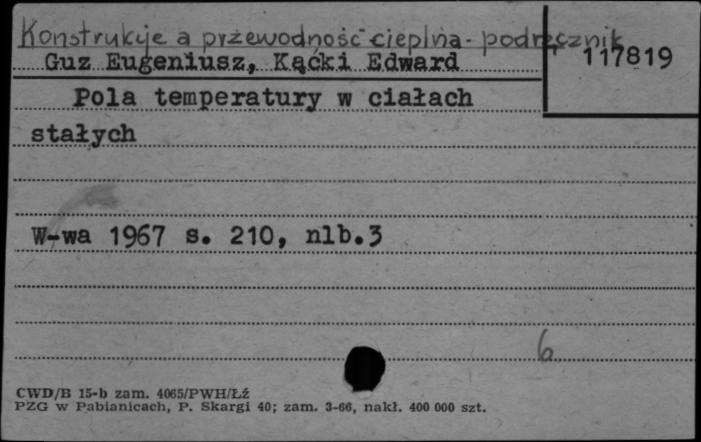 Konstrukcje a przewodność cieplna - podręcznik
117819
Guz Eugeniusz, Kącki Edward
Pola temperatury w ciałach
stałych
W-wa 1967 s. 210, nlb.3
6
CWD/B 15-b zam. 4065/PWH/Łź
PZG w Pabianicach, P. Skargi 40; zam. 3-66, nakł. 400 000 szt.